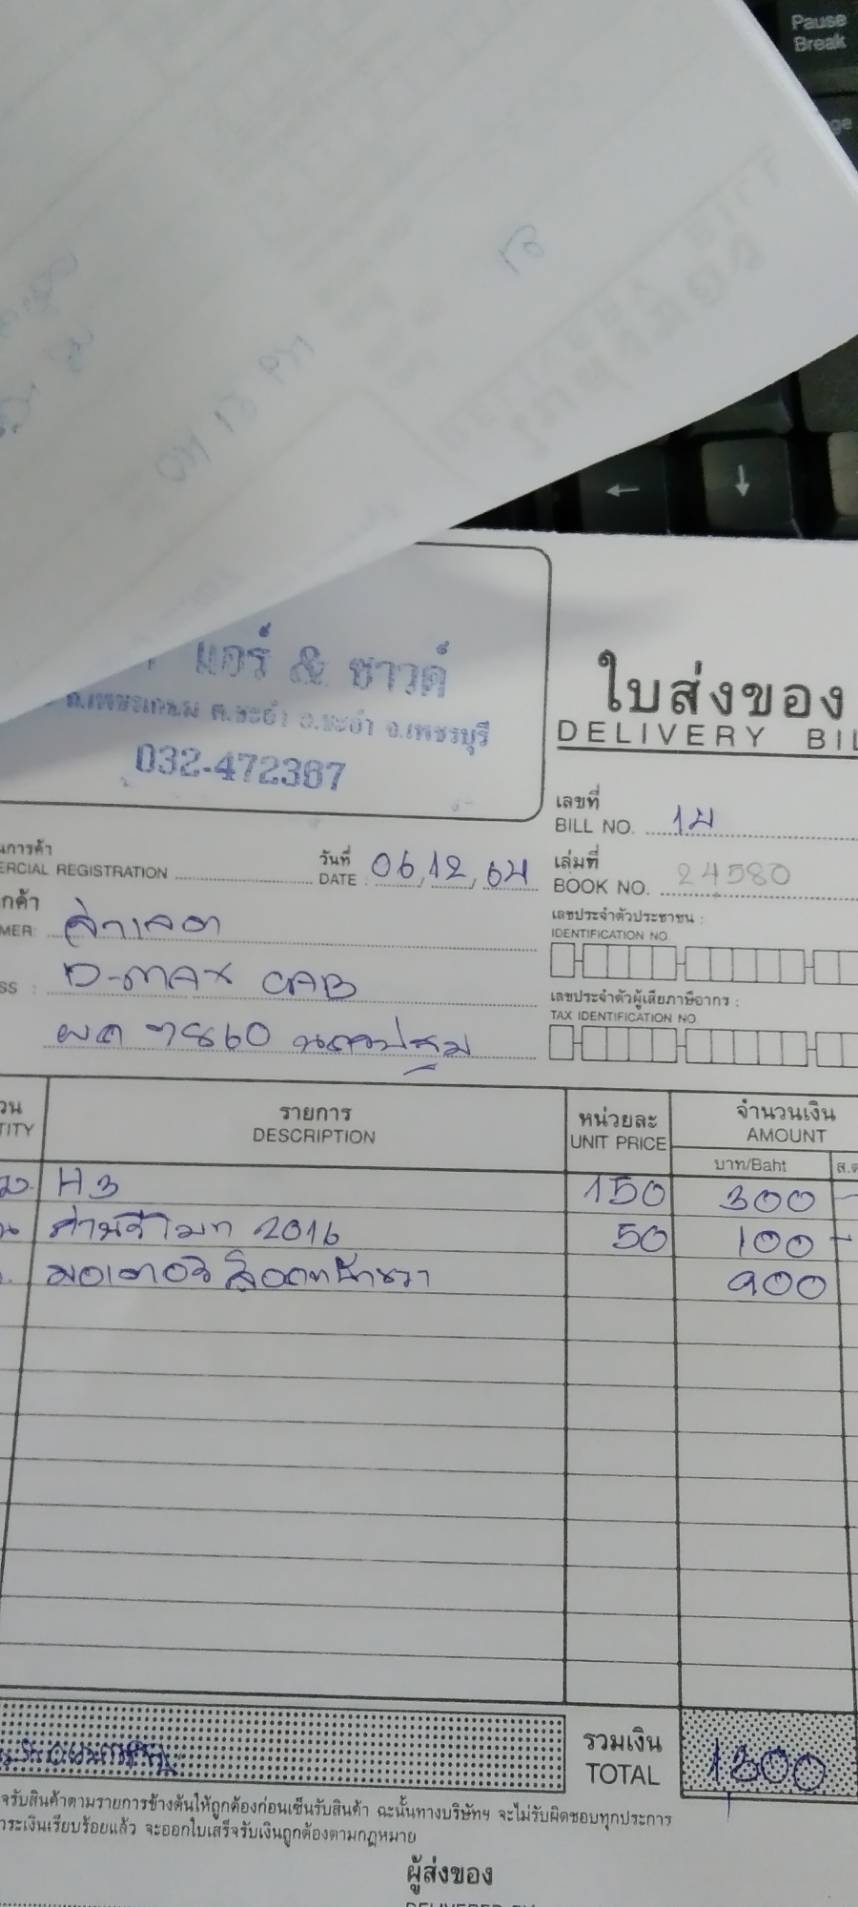 Pause
Break
แอร์ & ซาวด์
ถ.เพชรเกษม ต.ชะอำ อ.ชะอำ จ.เพชรบุรี
032-472367
ใบส่งของ
DELIVERY BIL
เลขที่
BILL NO. 14
วันที่
DATE 06,12,64
เล่มที่
BOOK NO. 24580
นการค้า
ERCIAL REGISTRATION
กค้า
MER:
เลขประจำตัวประชาชน :
IDENTIFICATION NO
SS : D-MAX CAB
เลขประจำตัวผู้เสียภาษีอากร :
TAX IDENTIFICATION NO
ผต 7860 นครปฐม
วน
TITY
รายการ
DESCRIPTION
หน่วยละ
UNIT PRICE
จำนวนเงิน
AMOUNT
บาท/Baht
H3 150 300 -
ถ่านรีโมท 2016 50 100 -
มอเตอร์ ล็อคหน้าขวา 900
รวมเงิน
TOTAL
1300
จรับสินค้าตามรายการข้างต้นให้ถูกต้องก่อนเซ็นรับสินค้า ฉะนั้นทางบริษัทฯ จะไม่รับผิดชอบทุกประการ
ำระเงินเรียบร้อยแล้ว จะออกใบเสร็จรับเงินถูกต้องตามกฎหมาย
ผู้ส่งของ